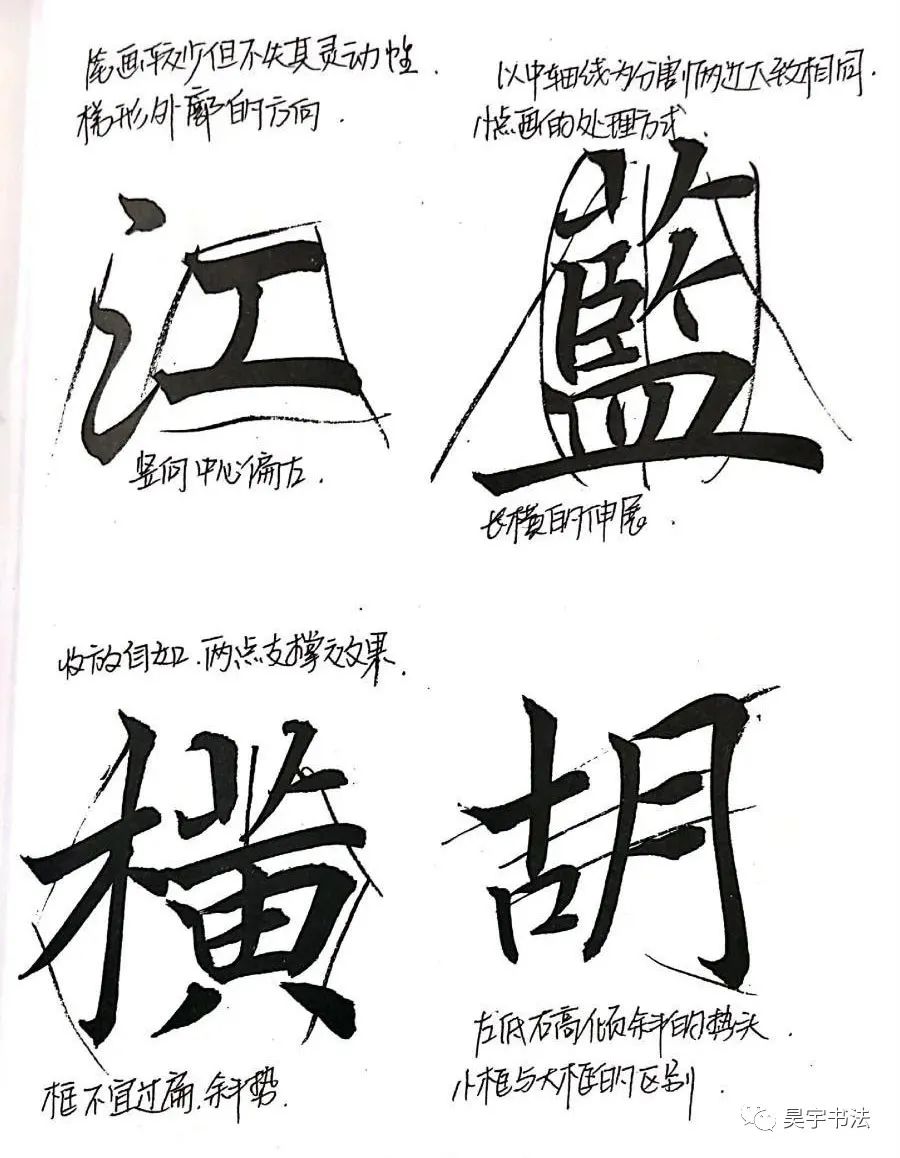 笔画较少但不失其灵动性.
梯形外廓的方向.
以中轴线为分割两边大致相同.
小点画的处理方式.
江
藍
竖向中心偏左.
长横的伸展.
收放自如.两点支撑之效果.
横
胡
框不宜过扁.斜势.
左低右高倾斜的势头.
小框与大框的区别
昊宇书法